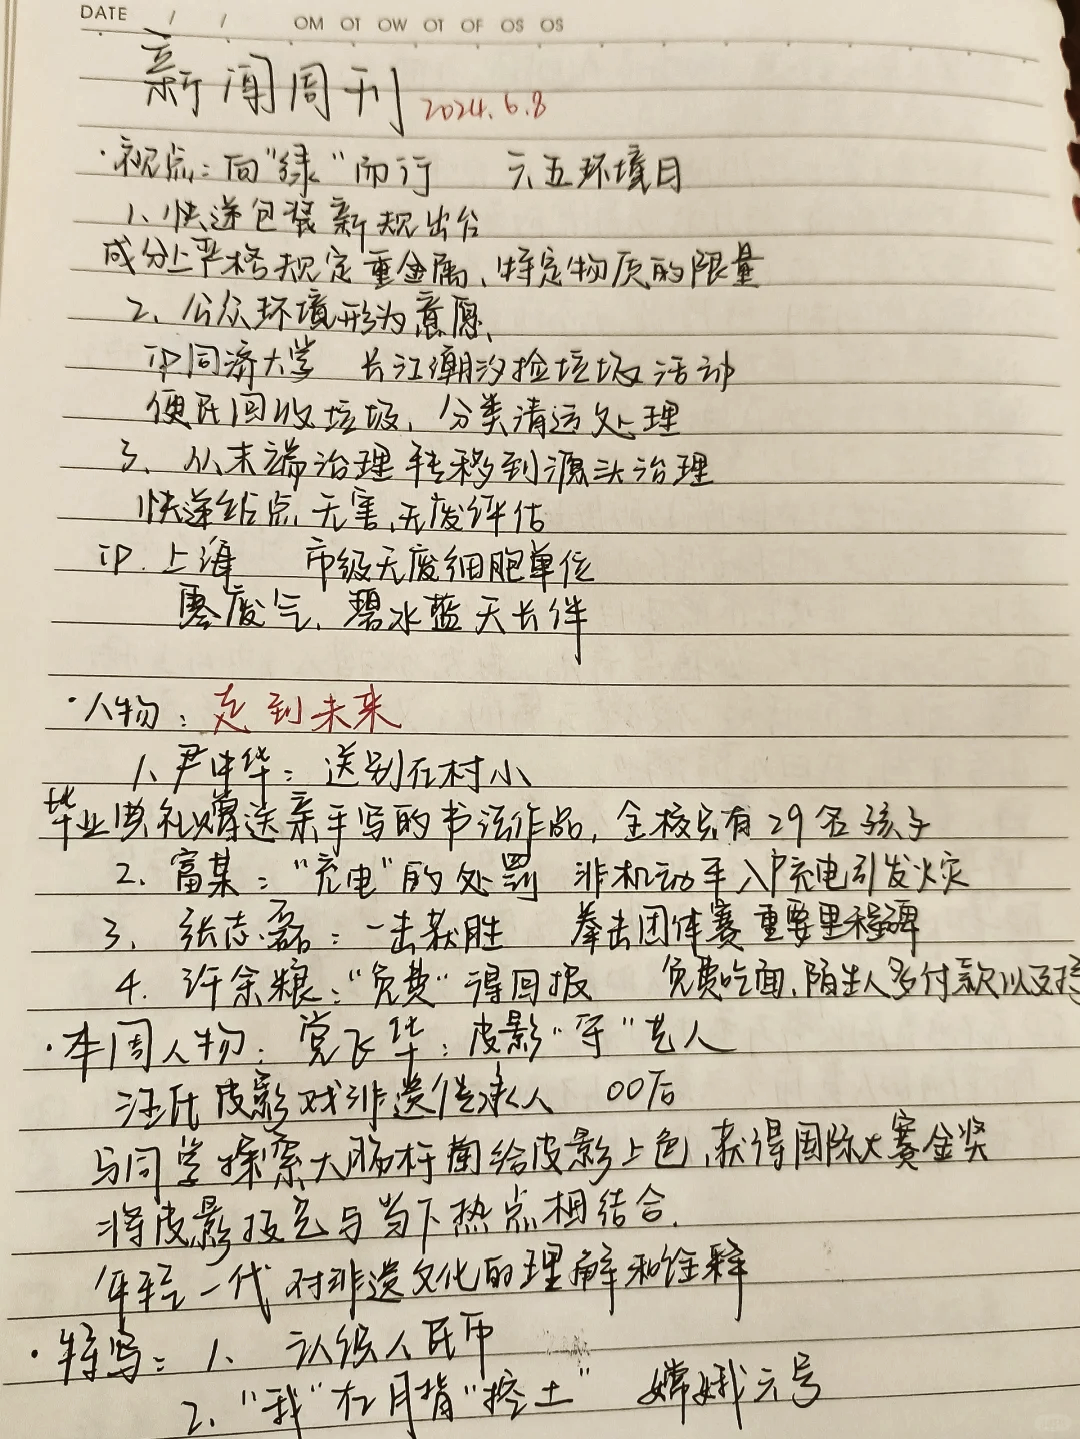 DATE / / OM OT OW OT OF OS OS
新闻周刊 2024.6.8
·视点：向“绿”而行 六五环境日
1、快递包装新规出台
成分上严格规定重金属、特定物质的限量
2、公众环境形为意愿、
如同济大学 长江潮汐捡垃圾活动
便民回收垃圾、分类清运处理
3、从末端治理转移到源头治理
快递站点 无害、无废评估
如.上海 市级无废细胞单位
零废气、碧水蓝天长伴
·人物：走到未来
1、尹中华：送别在村小
毕业典礼赠送亲手写的书法作品，全校只有29名孩子
2、富某：“充电”的处罚 非机动车入户充电引发火灾
3、张志磊：一击获胜 拳击团体赛重要里程碑
4. 许余粮：“免费”得回报 免费吃面、陌生人多付款以支持
·本周人物：党飞华：皮影“守”艺人
汪氏皮影戏非遗传承人 00后
与同学探索大肠杆菌给皮影上色，获得国际大赛金奖
将皮影技艺与当下热点相结合.
年轻一代对非遗文化的理解和诠释
·特写：1、认识人民币
2、“我”在月背“挖土” 嫦娥六号